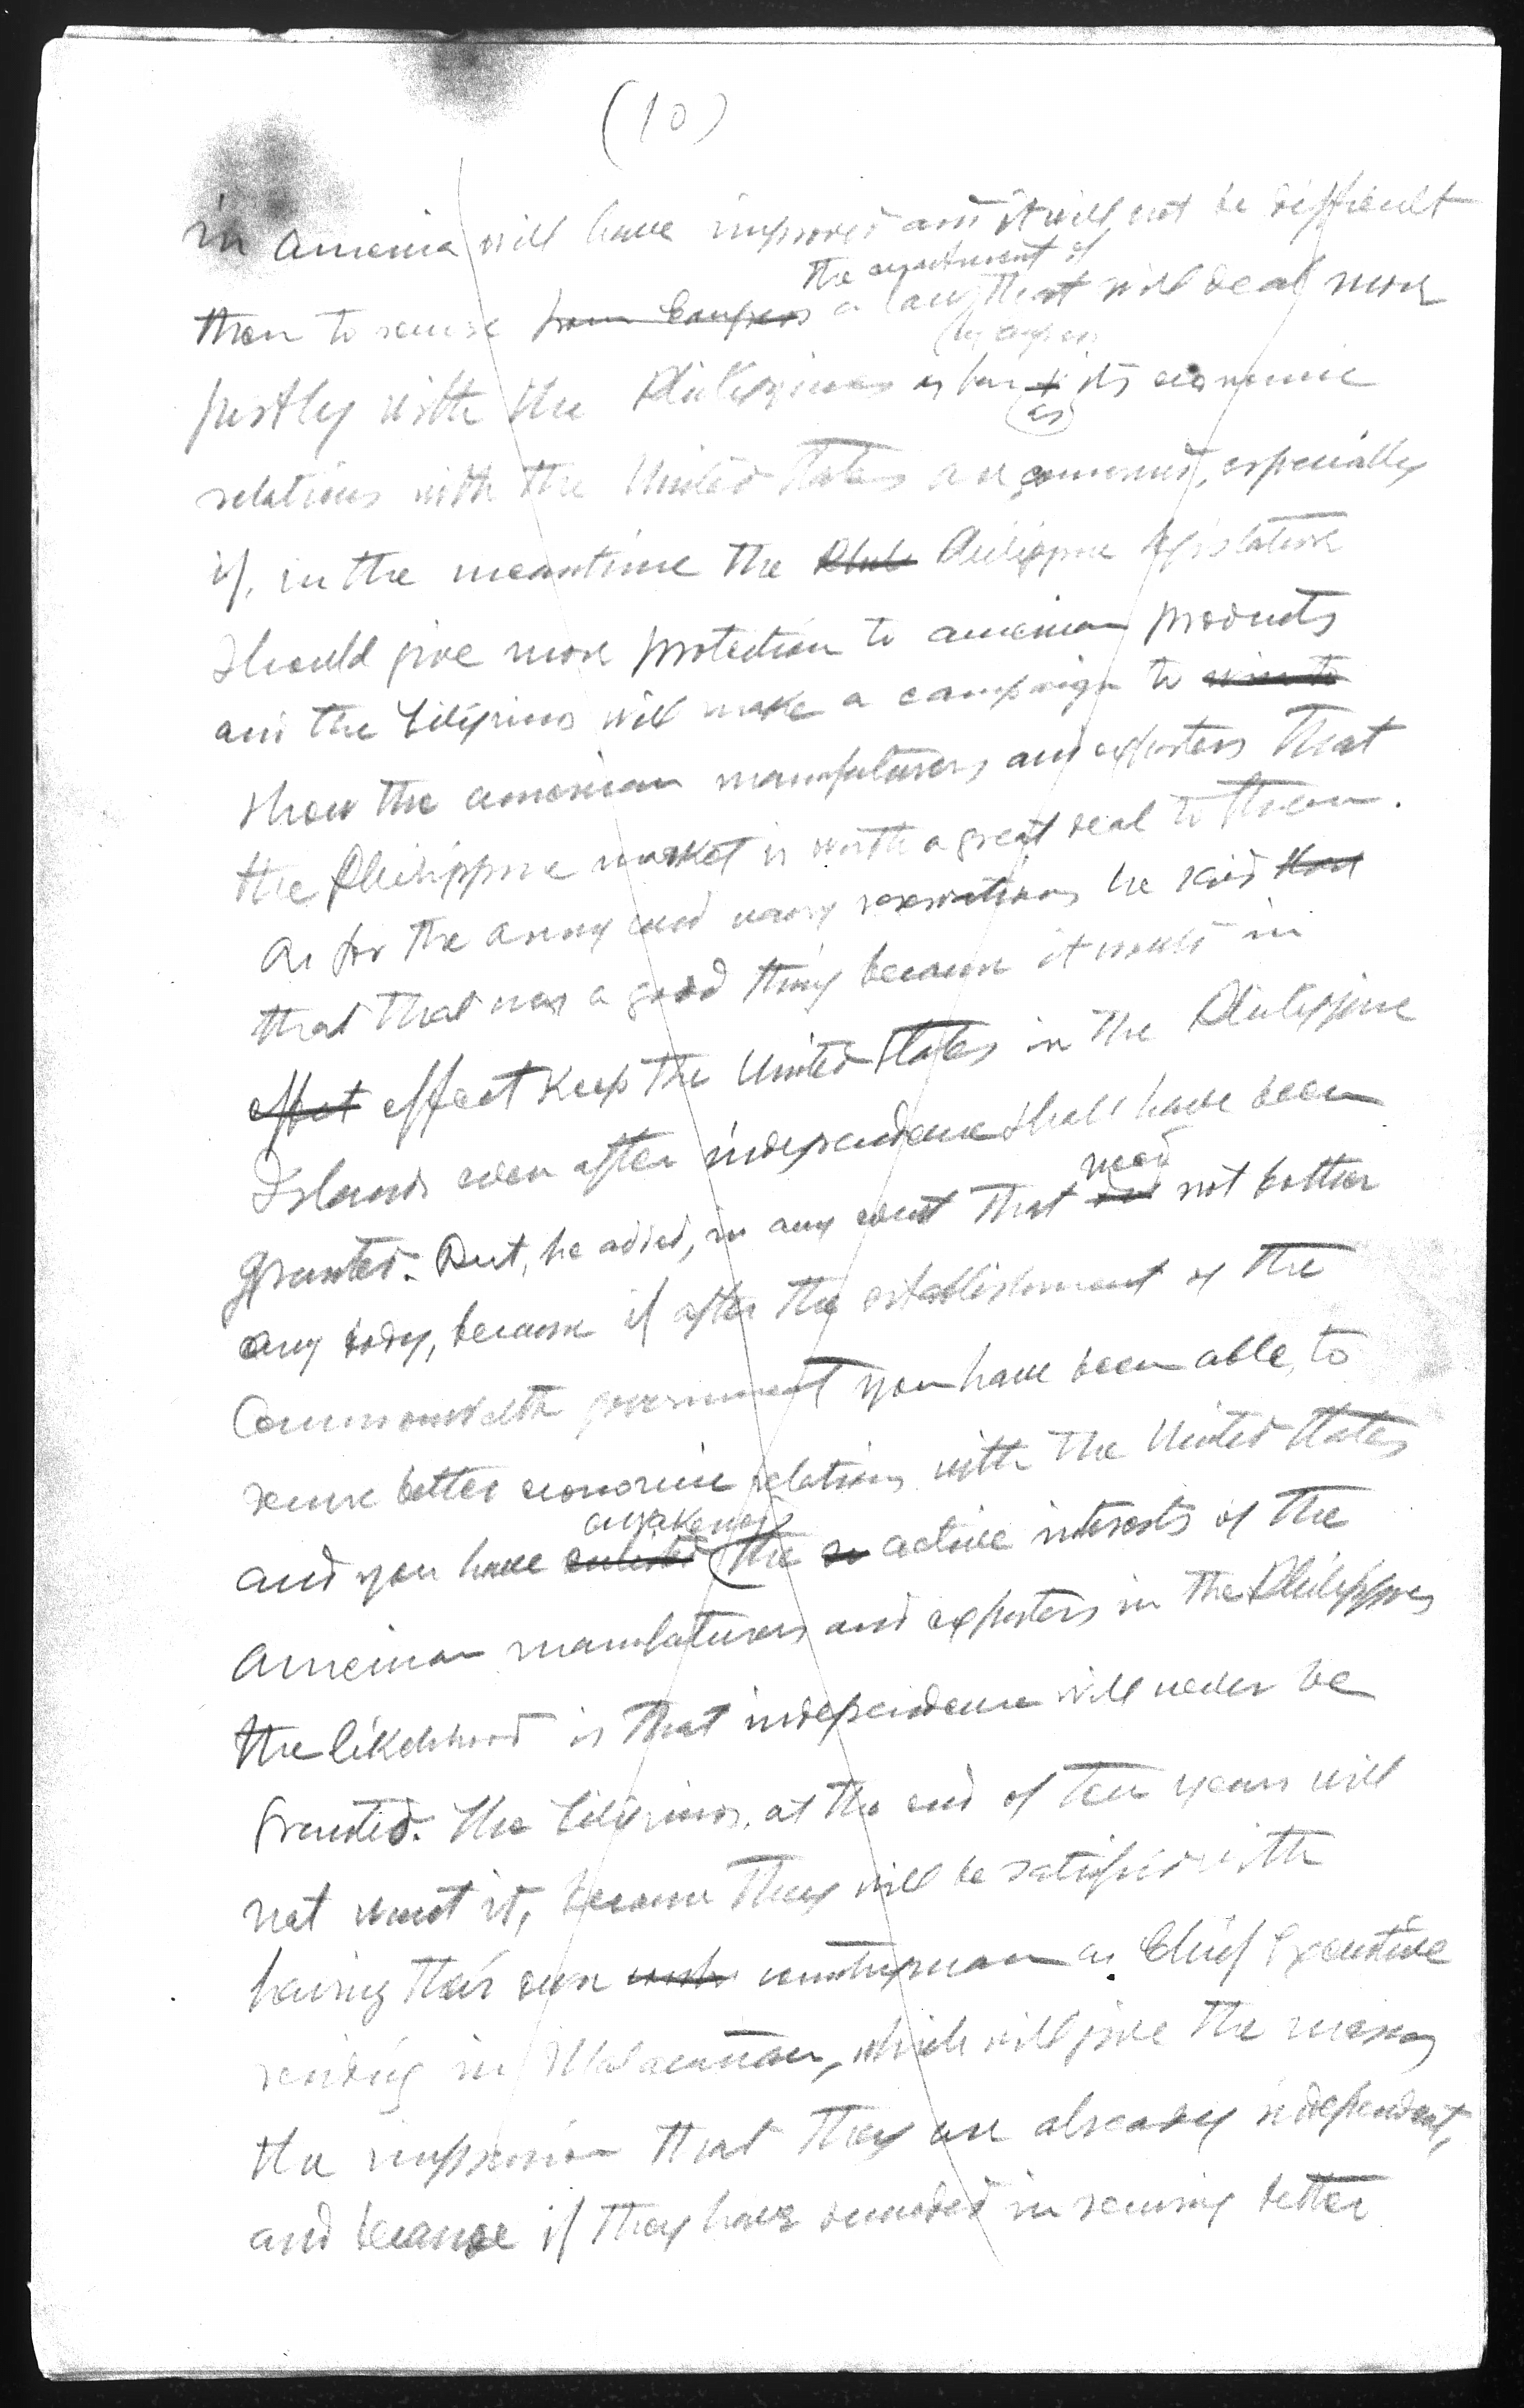 (10)
in America will have improved and it will not be difficult
the enactment of
then to secure from Congress a law that will deal more
(by Congress
justly with the Philippines as far as its economic
relations with the United States are concerned, especially
if, in the meantime the Phili Philippine Legislature
should give more protection to American products
and the Filipinos will make a campaign to
show the American manufacturers and exporters that
the Philippine market is worth a great deal to them.
As for the army and navy reservations he said that
that that was a good thing because it would in
effect effect keep the United States in the Philippine
Islands even after independence shall have been
need
granted. But, he added, in any event that not bother
any body, because if after the establishment of the
Commonwealth government you have been able to
secure better economic relations with the United States
awakened
and you have enlisted the active interests of the
American manufacturers and exporters in the Philippines
the likelihood is that independence will never be
granted. The Filipinos, at the end of ten years will
not want it, because they will be satisfied with
having their own countryman as Chief Executive
residing in Malacañan, which will give the masses
the impression that they are already independent,
and because if they have succeeded in securing better